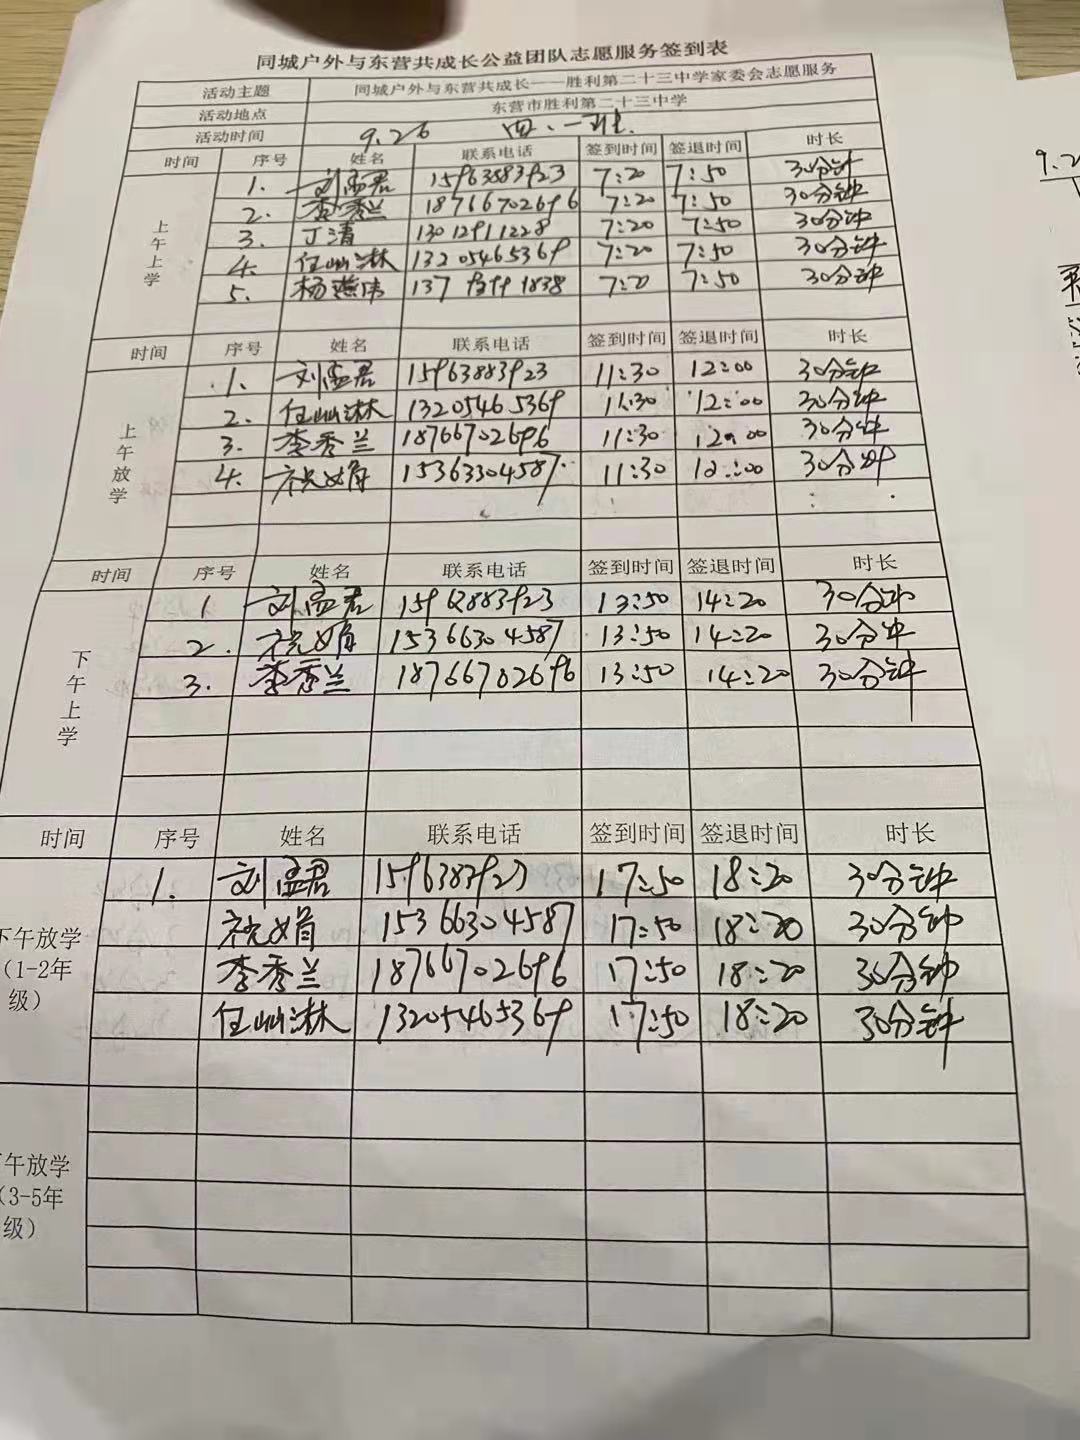 同城户外与东营共成长公益团队志愿服务签到表
活动主题 同城户外与东营共成长——胜利第二十三中学家委会志愿服务
活动地点 东营市胜利第二十三中学
活动时间 9.26 四.一班.
时间 序号 姓名 联系电话 签到时间 签退时间 时长
上午上学
1. 刘孟君 15963883923 7:20 7:50 30分钟
2. 李秀兰 18766702696 7:20 7:50 30分钟
3. 丁清 13012911228 7:20 7:50 30分钟
4. 任山淋 13205465369 7:20 7:50 30分钟
5. 杨燕伟 137 1838 7:20 7:50 30分钟
时间 序号 姓名 联系电话 签到时间 签退时间 时长
上午放学
1. 刘孟君 15963883923 11:30 12:00 30分钟
2. 任山淋 13205465369 11:30 12:00 30分钟
3. 李秀兰 18766702696 11:30 12:00 30分钟
4. 祝娟 15363304587 11:30 12:00 30分钟
时间 序号 姓名 联系电话 签到时间 签退时间 时长
下午上学
1 刘孟君 15963883923 13:50 14:20 30分钟
2. 祝娟 15366304587 13:50 14:20 30分钟
3. 李秀兰 18766702696 13:50 14:20 30分钟
时间 序号 姓名 联系电话 签到时间 签退时间 时长
下午放学
（1-2年
级）
1. 刘孟君 1596383923 17:50 18:20 30分钟
祝娟 15366304587 17:50 18:20 30分钟
李秀兰 18766702696 17:50 18:20 30分钟
任山淋 13205465369 17:50 18:20 30分钟
午放学
（3-5年
级）